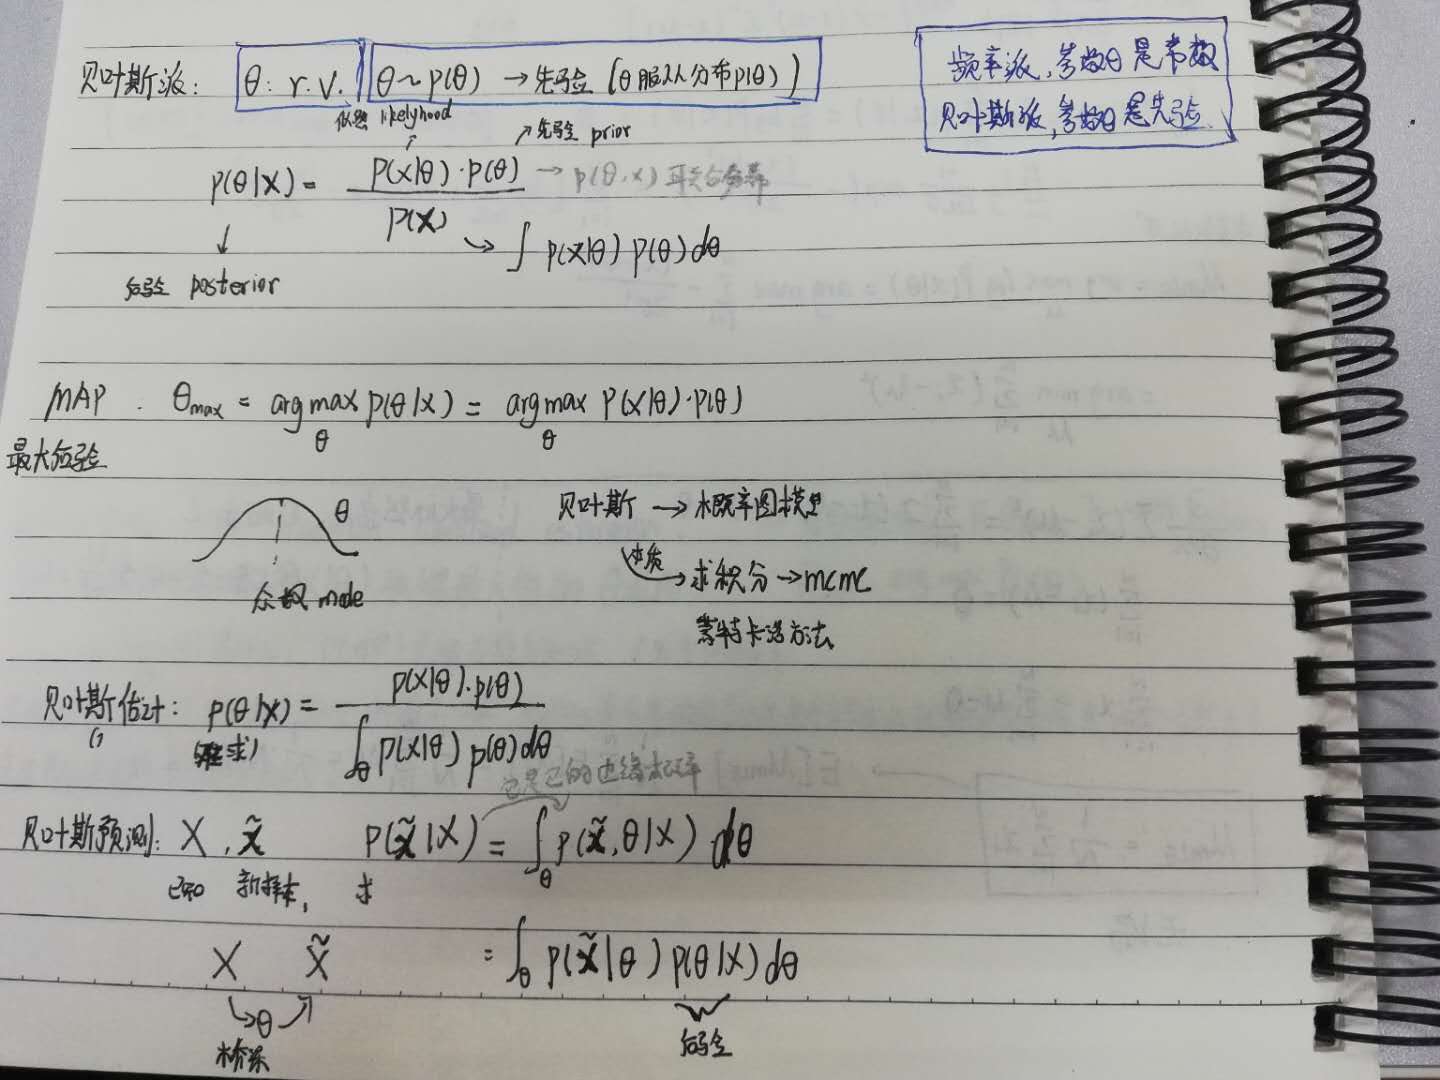 贝叶斯派: θ: r.v. θ~p(θ) → 先验 (θ服从分布p(θ))
频率派,参数θ是常数
贝叶斯派,参数θ是先验
似然 likelyhood
↗先验 prior
p(θ|X) = P(X|θ)·p(θ) / P(X)
→ p(θ,x) 联合概率
→ ∫ p(X|θ) p(θ) dθ
后验 posterior
MAP : θmax = argmax_θ p(θ|X) = argmax_θ P(X|θ)·p(θ)
最大后验
θ
众数 mode
贝叶斯 → 概率图模型
本质 → 求积分 → mcmc
蒙特卡洛方法
贝叶斯估计: p(θ|X) = p(X|θ)·p(θ) / ∫_θ p(X|θ) p(θ) dθ
(难求)
它是它的边缘概率
贝叶斯预测: X, x̃ P(x̃|X) = ∫_θ p(x̃,θ|X) dθ
已知 新样本, 求
X x̃ = ∫_θ p(x̃|θ) p(θ|X) dθ
→θ↗
桥梁
后验